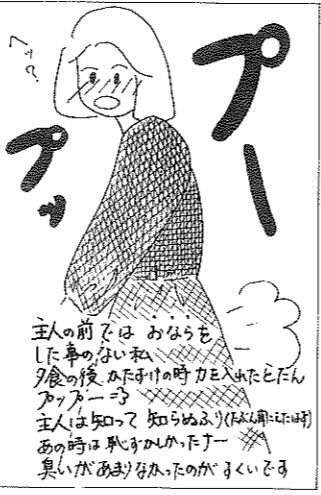 プー
ヘッ?
プッ
主人の前では おならを
した事のない私
夕食の後、かたずけの時 力を入れたとたん
プップー
主人は知って 知らぬふり(たぶん耳にしたはず)
あの時は恥ずかしかったナー
臭いがあまりなかったのがすくいです